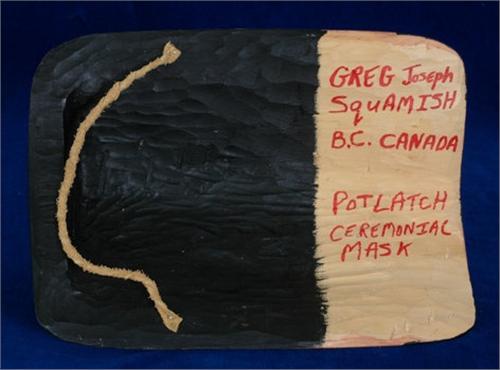 GREG Joseph
SquAMISH
B.C. CANADA
POTLATCH
CEREMONIAL
MASK